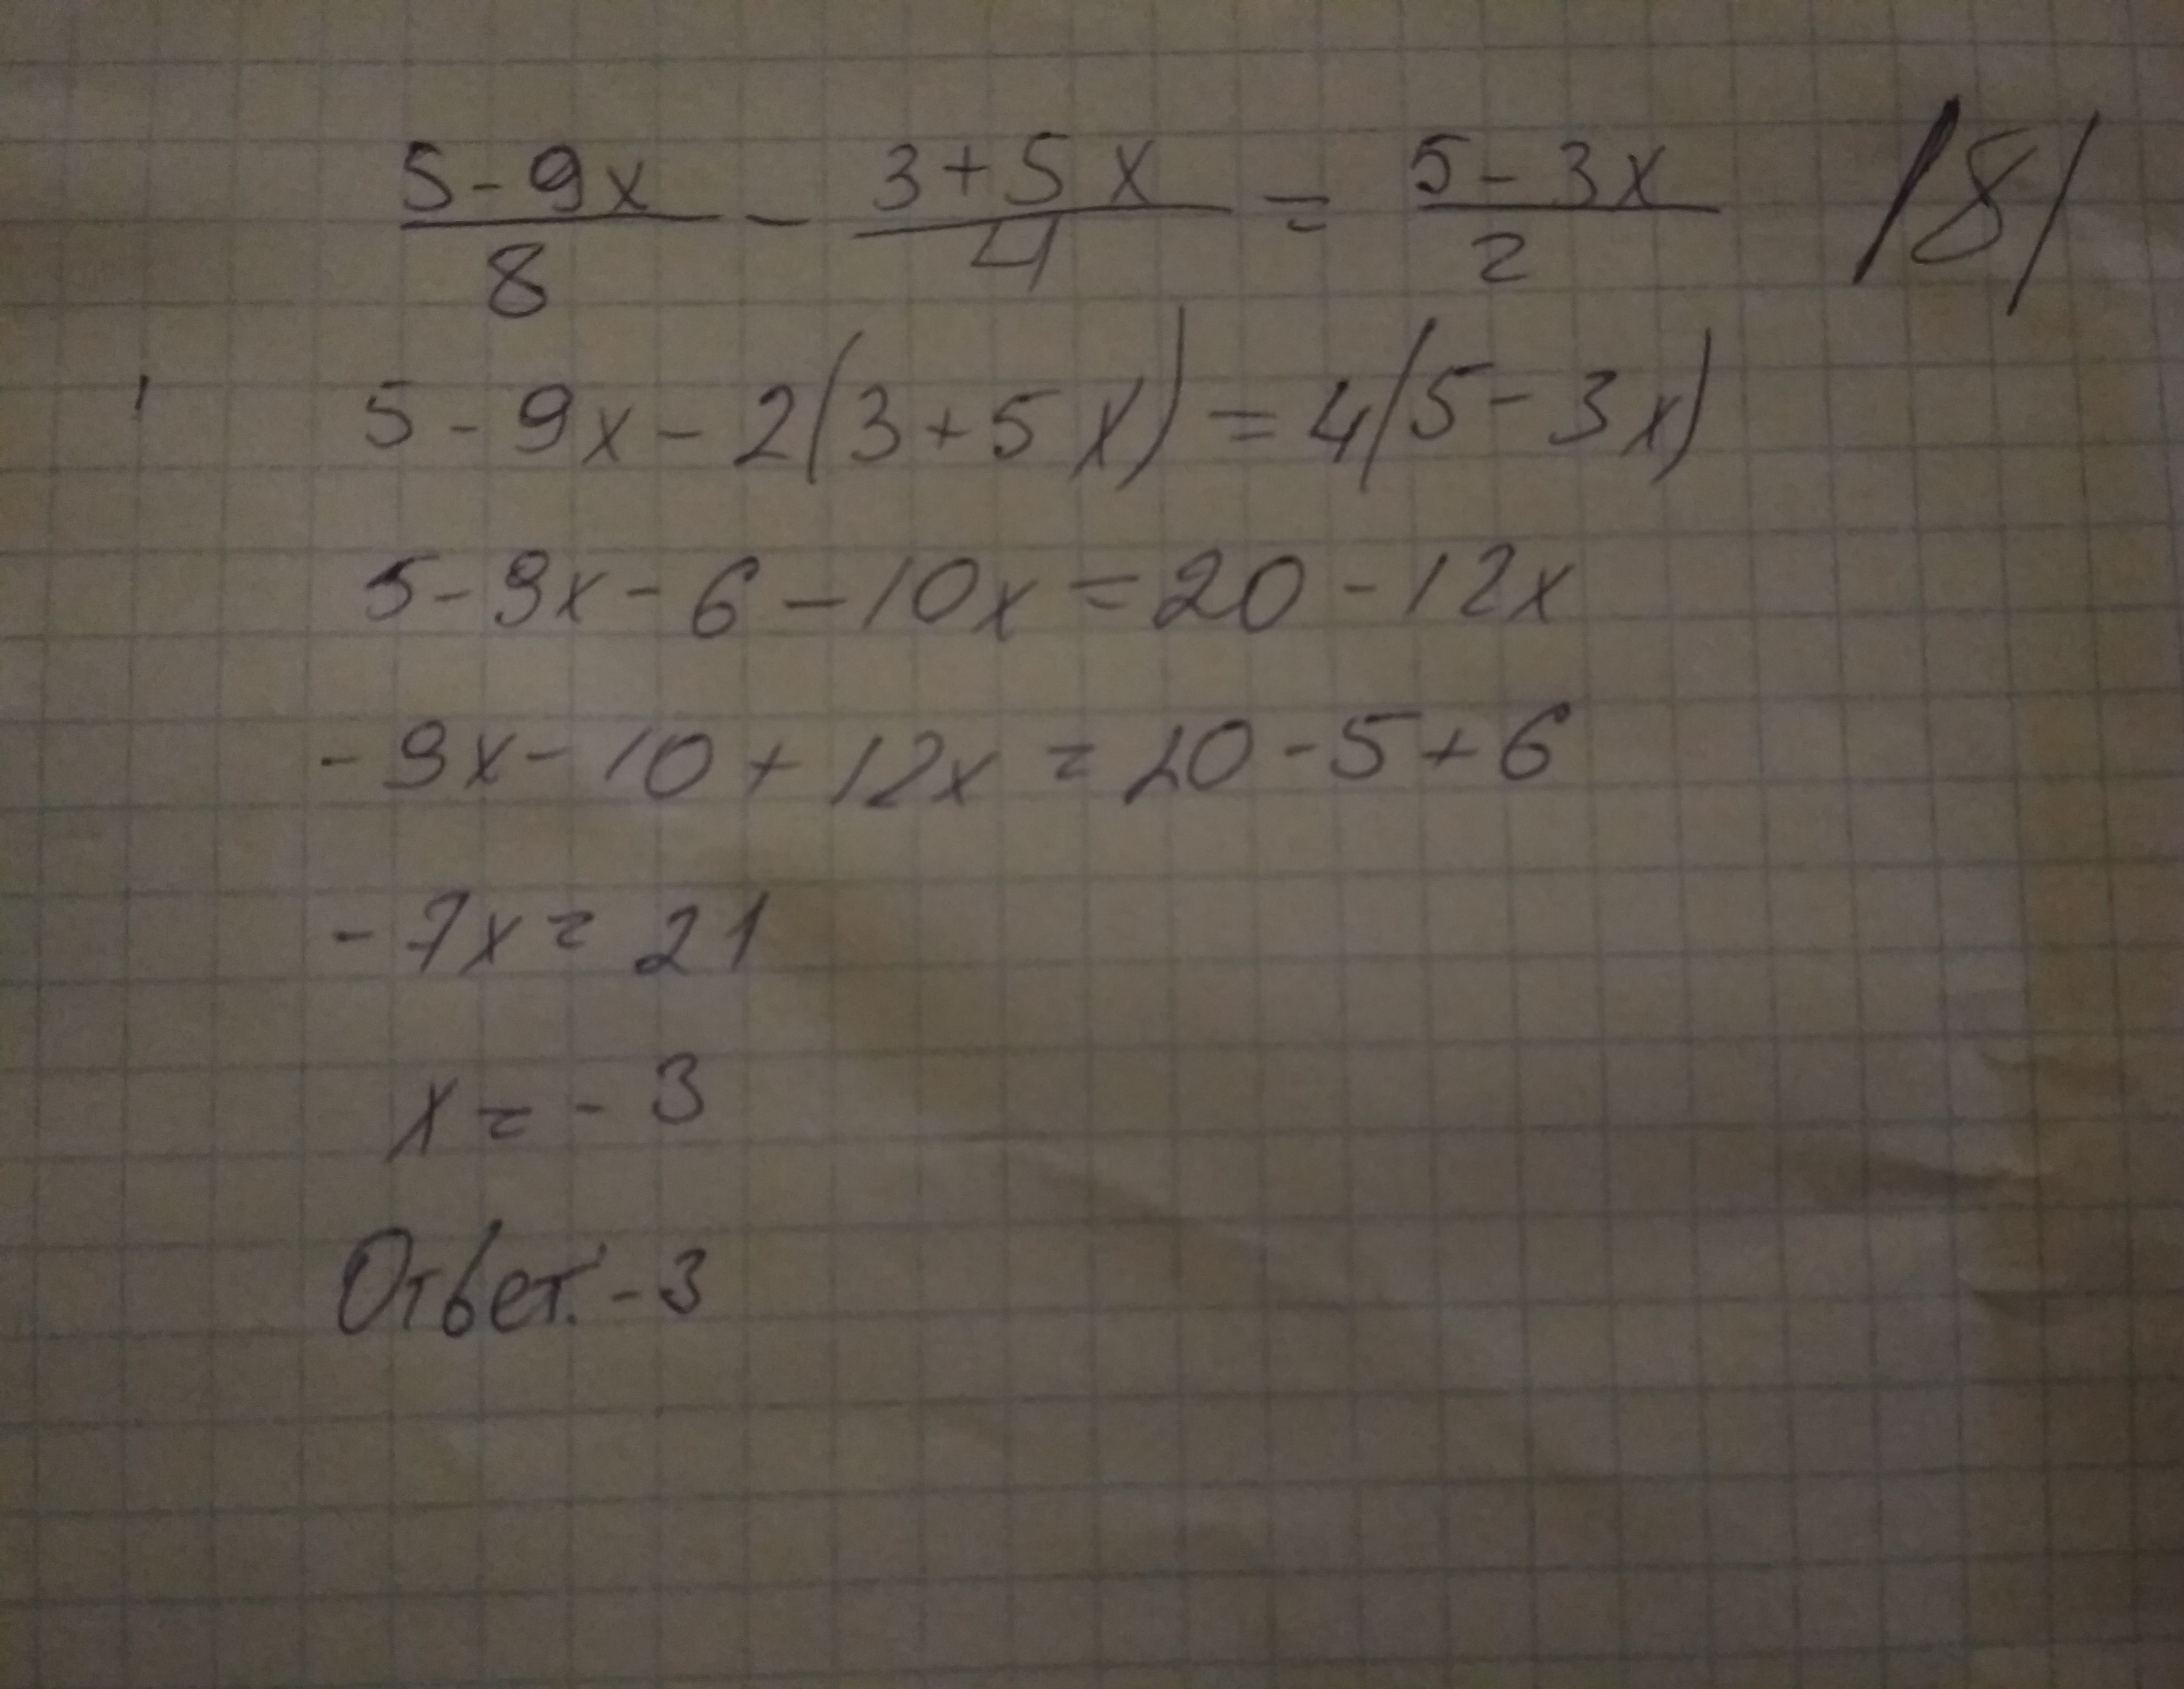 5-9x/8 - 3+5x/4 = 5-3x/2 /8/
5-9x-2(3+5x)=4(5-3x)
5-9x-6-10x=20-12x
-9x-10+12x=20-5+6
-7x=21
x=-3
Ответ:-3